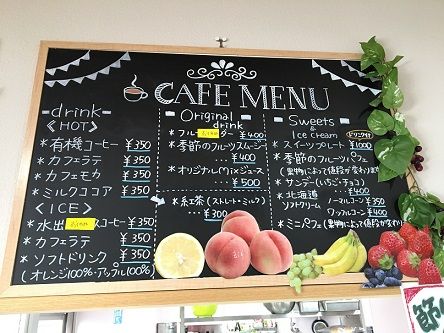 CAFE MENU
drink
《HOT》
*有機コーヒー ¥350
*カフェラテ ¥350
*カフェモカ ¥350
*ミルクココア ¥350
《ICE》
*水出 スコーヒー ¥350
*カフェラテ ¥350
*ソフトドリンク ¥350
(オレンジ100%・アップル100%)
Original
drink
*フルー ¥400
*季節のフルーツスムージー
¥400
*オリジナルMixジュース
¥500
*紅茶(ストレート・ミルク)
¥300
Sweets
&
Ice cream
*スイーツプレート ¥1000
*季節のフルーツパフェ
(果物によって値段が変わります
*サンデー(いちご・チョコ)
¥400
*北海道
ソフトクリーム
ノーマルコーン ¥350
ワッフルコーン ¥400
*ミニパフェ(果物によって値段が変わり